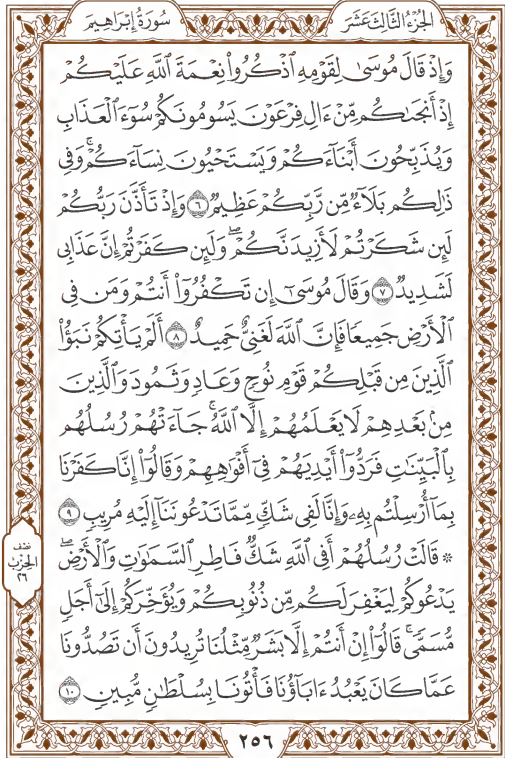 سُورَةُ إِبْرَاهِيمَ
الجُزْءُ الثَّالِثَ عَشَرَ
وَإِذْ قَالَ مُوسَىٰ لِقَوْمِهِ ٱذْكُرُوا۟ نِعْمَةَ ٱللَّهِ عَلَيْكُمْ
إِذْ أَنجَىٰكُم مِّنْ ءَالِ فِرْعَوْنَ يَسُومُونَكُمْ سُوٓءَ ٱلْعَذَابِ
وَيُذَبِّحُونَ أَبْنَآءَكُمْ وَيَسْتَحْيُونَ نِسَآءَكُمْ ۚ وَفِى
ذَٰلِكُم بَلَآءٌ مِّن رَّبِّكُمْ عَظِيمٌ ٦ وَإِذْ تَأَذَّنَ رَبُّكُمْ
لَئِن شَكَرْتُمْ لَأَزِيدَنَّكُمْ ۖ وَلَئِن كَفَرْتُمْ إِنَّ عَذَابِى
لَشَدِيدٌ ٧ وَقَالَ مُوسَىٰٓ إِن تَكْفُرُوٓا۟ أَنتُمْ وَمَن فِى
ٱلْأَرْضِ جَمِيعًا فَإِنَّ ٱللَّهَ لَغَنِىٌّ حَمِيدٌ ٨ أَلَمْ يَأْتِكُمْ نَبَؤُا۟
ٱلَّذِينَ مِن قَبْلِكُمْ قَوْمِ نُوحٍ وَعَادٍ وَثَمُودَ وَٱلَّذِينَ
مِنۢ بَعْدِهِمْ لَا يَعْلَمُهُمْ إِلَّا ٱللَّهُ ۚ جَآءَتْهُمْ رُسُلُهُم
بِٱلْبَيِّنَٰتِ فَرَدُّوٓا۟ أَيْدِيَهُمْ فِىٓ أَفْوَٰهِهِمْ وَقَالُوٓا۟ إِنَّا كَفَرْنَا
بِمَآ أُرْسِلْتُم بِهِۦ وَإِنَّا لَفِى شَكٍّ مِّمَّا تَدْعُونَنَآ إِلَيْهِ مُرِيبٍ ٩
۞ قَالَتْ رُسُلُهُمْ أَفِى ٱللَّهِ شَكٌّ فَاطِرِ ٱلسَّمَٰوَٰتِ وَٱلْأَرْضِ ۖ
يَدْعُوكُمْ لِيَغْفِرَ لَكُم مِّن ذُنُوبِكُمْ وَيُؤَخِّرَكُمْ إِلَىٰٓ أَجَلٍ
مُّسَمًّى ۚ قَالُوٓا۟ إِنْ أَنتُمْ إِلَّا بَشَرٌ مِّثْلُنَا تُرِيدُونَ أَن تَصُدُّونَا
عَمَّا كَانَ يَعْبُدُ ءَابَآؤُنَا فَأْتُونَا بِسُلْطَٰنٍ مُّبِينٍ ١٠
نِصْف
الحِزْبِ
٢٦
٢٥٦